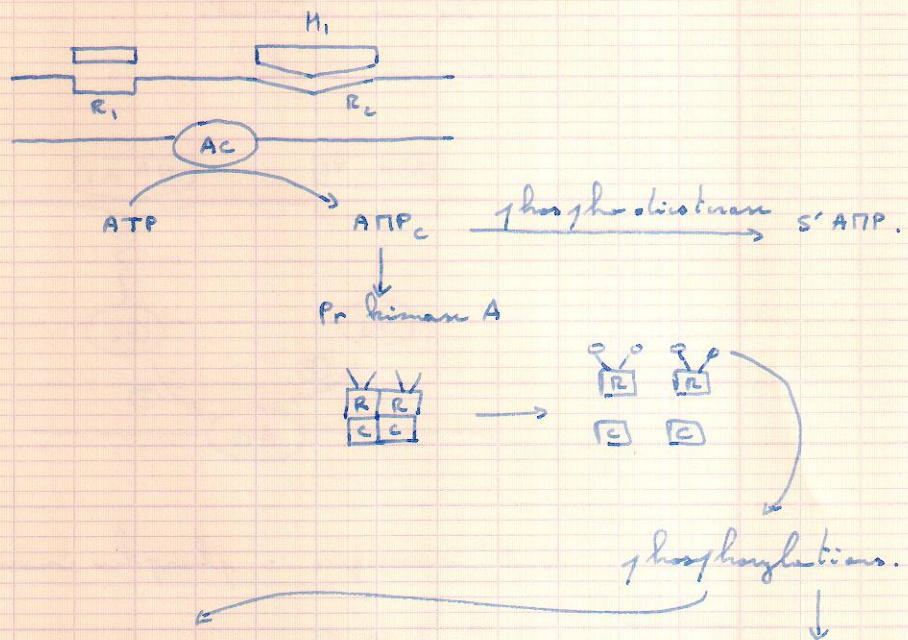 H₁
R₁ R₂
AC
ATP AMPc phosphodiesterase 5'AMP.
Pr kinase A
R R R R
C C C C
phosphorylations.